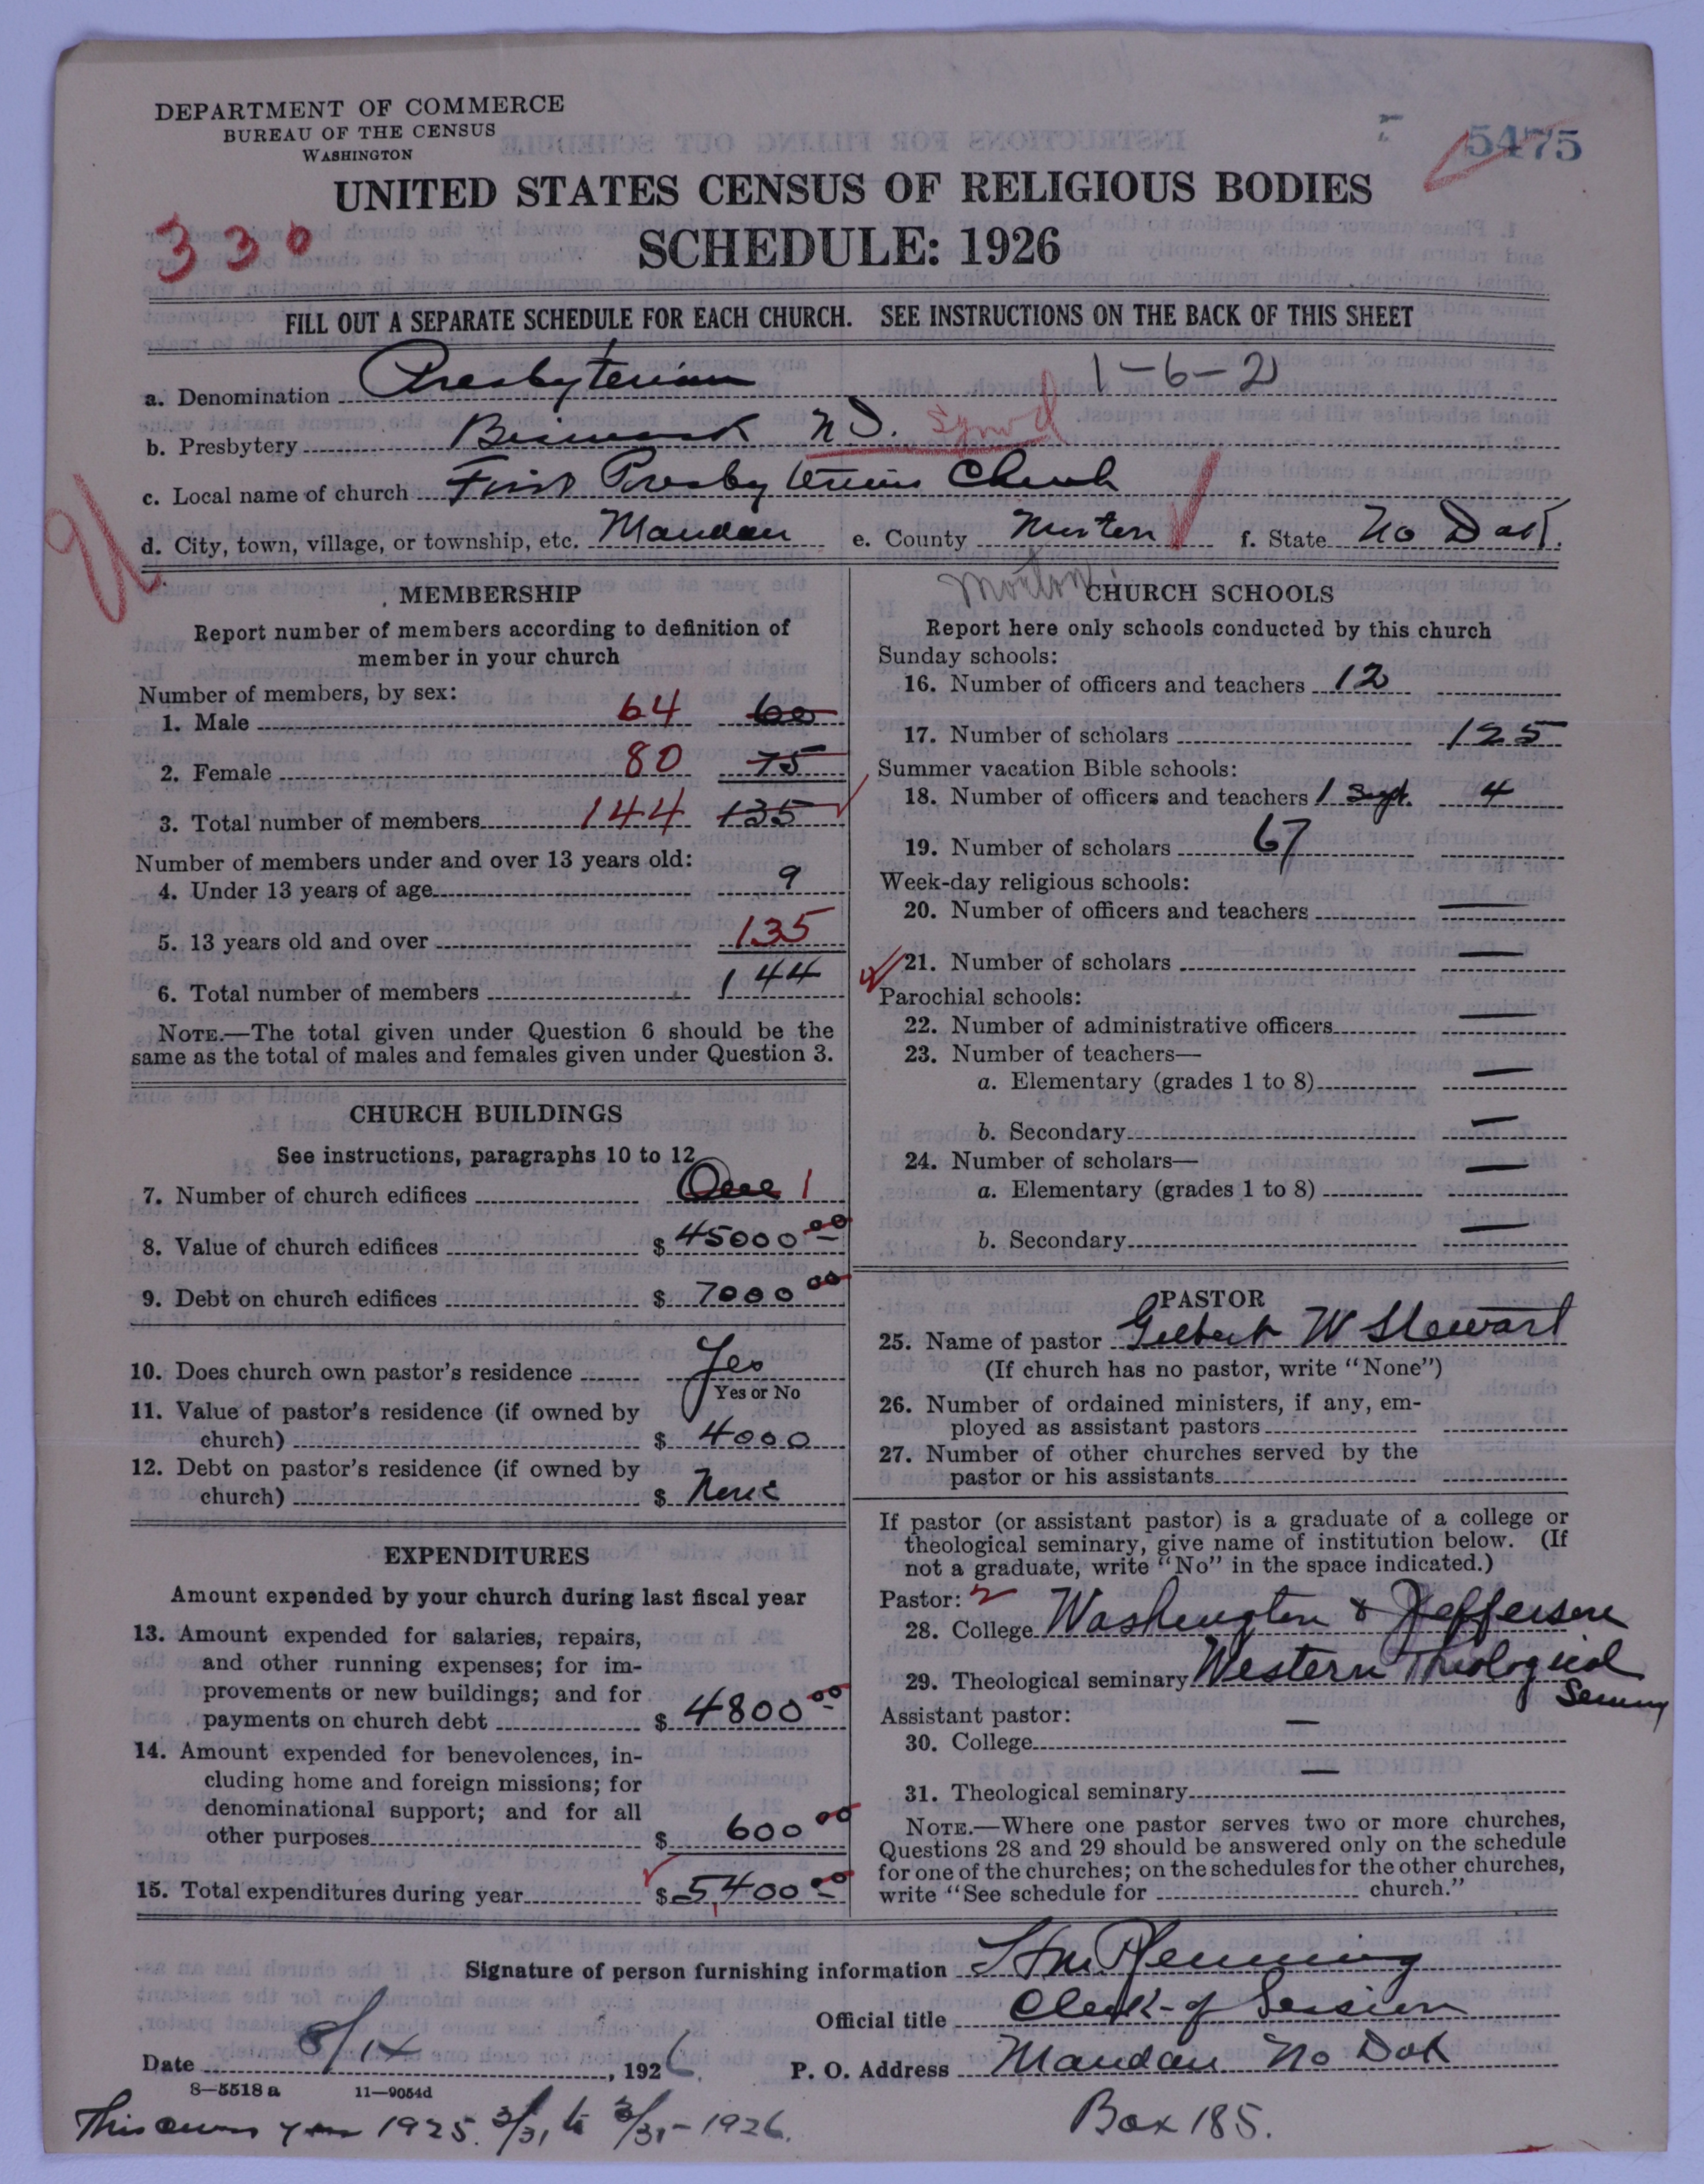 DEPARTMENT OF COMMERCE
BUREAU OF THE CENSUS
WASHINGTON
5475
UNITED STATES CENSUS OF RELIGIOUS BODIES
330
SCHEDULE: 1926
FILL OUT A SEPARATE SCHEDULE FOR EACH CHURCH. SEE INSTRUCTIONS ON THE BACK OF THIS SHEET
a. Denomination Presbyterian 1-6-2
b. Presbytery Bismarck N D. Synod
c. Local name of church First Presbyterian Church
d. City, town, village, or township, etc. Mandan e. County Morton f. State No Dak.
Morton
MEMBERSHIP
Report number of members according to definition of
member in your church
Number of members, by sex:
1. Male 64 60
2. Female 80 75
3. Total number of members 144 135
Number of members under and over 13 years old:
4. Under 13 years of age 9
5. 13 years old and over 135
6. Total number of members 144
NOTE.—The total given under Question 6 should be the
same as the total of males and females given under Question 3.
CHURCH BUILDINGS
See instructions, paragraphs 10 to 12
7. Number of church edifices One 1
8. Value of church edifices $ 45000 00
9. Debt on church edifices $ 7000 00
10. Does church own pastor's residence Yes
Yes or No
11. Value of pastor's residence (if owned by
church) $ 4000
12. Debt on pastor's residence (if owned by
church) $ None
EXPENDITURES
Amount expended by your church during last fiscal year
13. Amount expended for salaries, repairs,
and other running expenses; for im-
provements or new buildings; and for
payments on church debt $ 4800 00
14. Amount expended for benevolences, in-
cluding home and foreign missions; for
denominational support; and for all
other purposes $ 600 00
15. Total expenditures during year $ 5400 00
CHURCH SCHOOLS
Report here only schools conducted by this church
Sunday schools:
16. Number of officers and teachers 12
17. Number of scholars 125
Summer vacation Bible schools:
18. Number of officers and teachers 1 Supt. 4
19. Number of scholars 67
Week-day religious schools:
20. Number of officers and teachers —
21. Number of scholars —
Parochial schools:
22. Number of administrative officers —
23. Number of teachers—
a. Elementary (grades 1 to 8) —
b. Secondary —
24. Number of scholars—
a. Elementary (grades 1 to 8) —
b. Secondary —
PASTOR
25. Name of pastor Gilbert W Stewart
(If church has no pastor, write "None")
26. Number of ordained ministers, if any, em-
ployed as assistant pastors
27. Number of other churches served by the
pastor or his assistants
If pastor (or assistant pastor) is a graduate of a college or
theological seminary, give name of institution below. (If
not a graduate, write "No" in the space indicated.)
Pastor: 2
28. College Washington & Jefferson
29. Theological seminary Western Theological
Seminary
Assistant pastor:
30. College —
31. Theological seminary —
NOTE.—Where one pastor serves two or more churches,
Questions 28 and 29 should be answered only on the schedule
for one of the churches; on the schedules for the other churches,
write "See schedule for church."
Signature of person furnishing information
Official title Clerk of Session
Date 8/14, 1926
P. O. Address Mandan No Dak
8—5518 a 11—9054d
Box 185.
This covers year 1925. 3/31 to 3/31-1926.